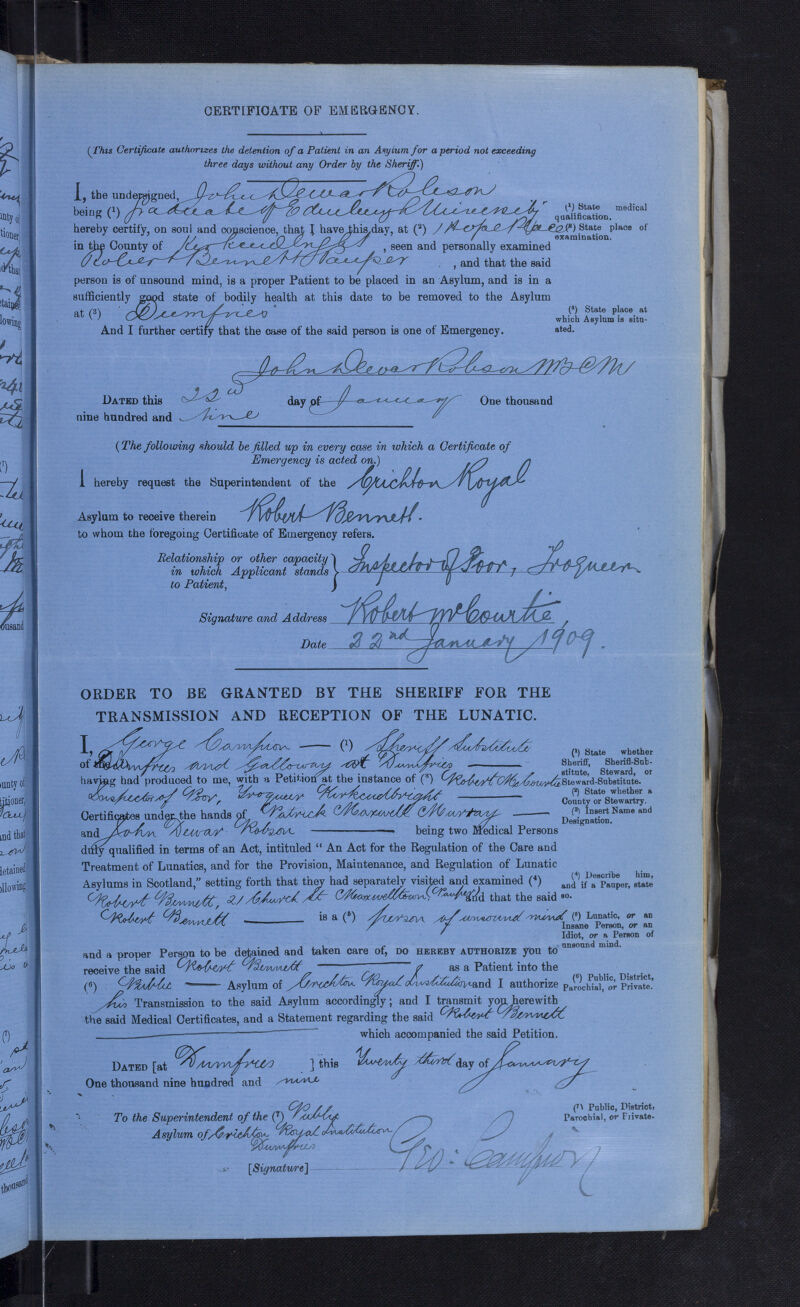 CERTIFICATE OF EMERGENCY.
(This Certificate authorizes the detention of a Patient in an Asylum for a period not exceeding
three days without any Order by the Sheriff.)
I, the undersigned, John Dewar Robson
being (¹) Graduate of Edinburgh University
(¹) State medical
qualification.
hereby certify, on soul and conscience, that I have this day, at (²) 1 Hope Place
(²) State place of
examination.
in the County of Kirkcudbright, seen and personally examined
Robert Bennett Pauper, and that the said
person is of unsound mind, is a proper Patient to be placed in an Asylum, and is in a
sufficiently good state of bodily health at this date to be removed to the Asylum
at (³) Dumfries
(³) State place at
which Asylum is situ-
ated.
And I further certify that the case of the said person is one of Emergency.
John Dewar Robson MB CM
DATED this 22nd day of January One thousand
nine hundred and nine
(The following should be filled up in every case in which a Certificate of
Emergency is acted on.)
I hereby request the Superintendent of the Crichton Royal
Asylum to receive therein Robert Bennett.
to whom the foregoing Certificate of Emergency refers.
Relationship or other capacity
in which Applicant stands
to Patient,
} Inspector of Poor, Troqueer
Signature and Address Robert McCourtie,
Date 22nd January 1909.
ORDER TO BE GRANTED BY THE SHERIFF FOR THE
TRANSMISSION AND RECEPTION OF THE LUNATIC.
I, George Campion — (¹) Sheriff Substitute
of Dumfries and Galloway at Dumfries
(¹) State whether
Sheriff, Sheriff-Sub-
stitute, Steward, or
Steward-Substitute.
having had produced to me, with a Petition at the instance of (²) Robert McCourtie
Inspector of Poor, Troqueer Kirkcudbright
(²) State whether a
County or Stewartry.
Certificates under the hands of Patrick Maxwell Murray
(³) Insert Name and
Designation.
and John Dewar Robson being two Medical Persons
duly qualified in terms of an Act, intituled "An Act for the Regulation of the Care and
Treatment of Lunatics, and for the Provision, Maintenance, and Regulation of Lunatic
Asylums in Scotland," setting forth that they had separately visited and examined (⁴)
(⁴) Describe him,
and if a Pauper, state
so.
Robert Bennett, 21 Church St Maxwelltown, (Pauper) and that the said
Robert Bennett is a (⁵) person of unsound mind
(⁵) Lunatic, or an
Insane Person, or an
Idiot, or a Person of
unsound mind.
and a proper Person to be detained and taken care of, DO HEREBY AUTHORIZE you to
receive the said Robert Bennett as a Patient into the
(⁶) Public — Asylum of Crichton Royal Institution and I authorize
(⁶) Public, District,
Parochial, or Private.
his Transmission to the said Asylum accordingly; and I transmit you herewith
the said Medical Certificates, and a Statement regarding the said Robert Bennett
which accompanied the said Petition.
DATED [at Dumfries ] this Twenty third day of January
One thousand nine hundred and nine
To the Superintendent of the (⁷) Public
(⁷) Public, District,
Parochial, or Private.
Asylum of Crichton Royal Institution
Dumfries
[Signature] Geo: Campion